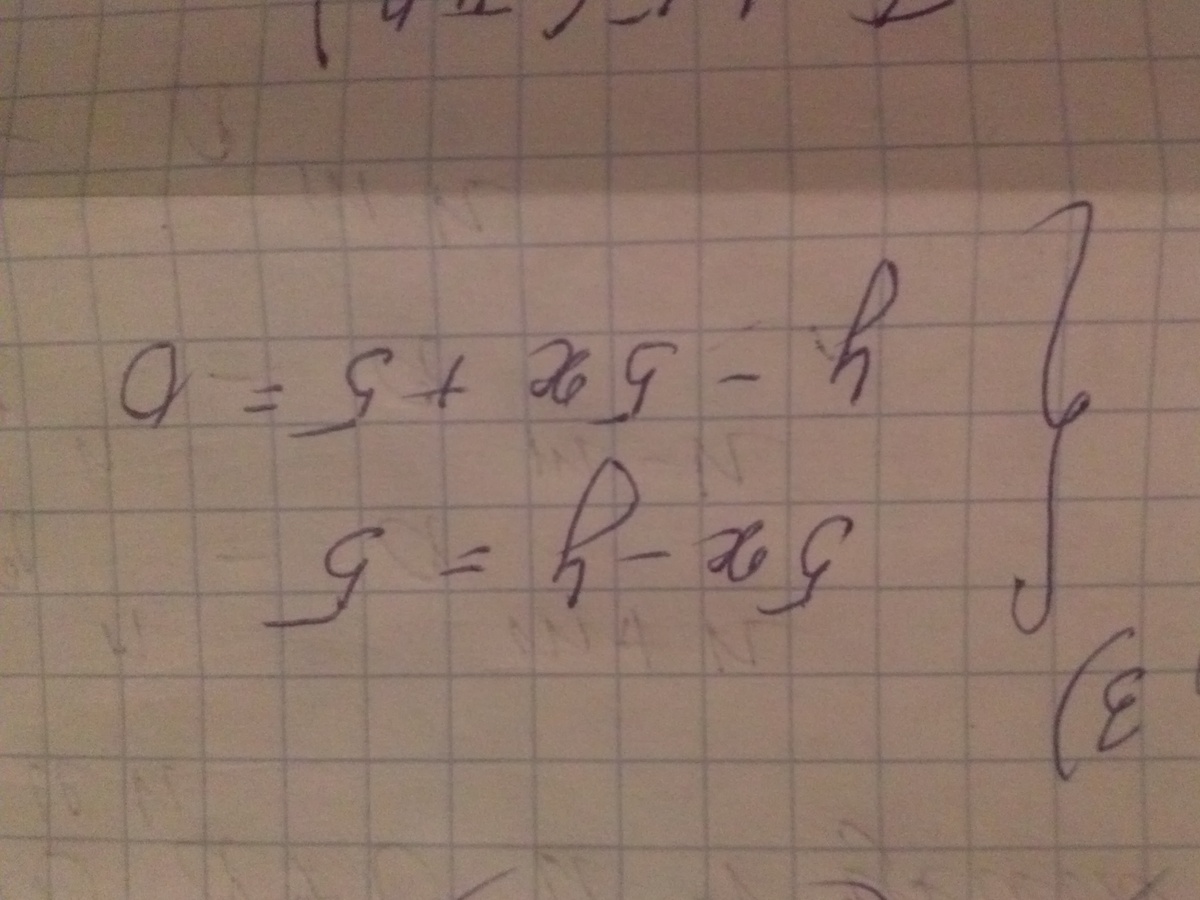 3)
5x - y = 5
y - 5x + 5 = 0